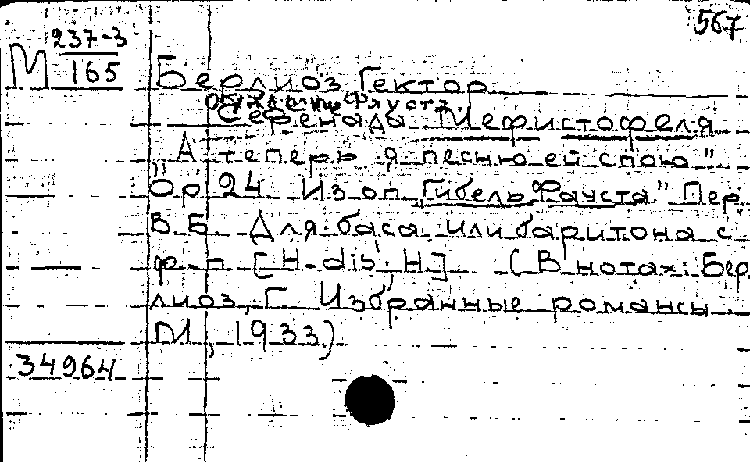 567
М 237-3
165
Берлиоз Гектор
Осужден. Фауста
Серенада Мефистофеля
„А теперь я песню ей спою"
Ор 24 Из оп „Гибель Фауста" Пер
В.Б. Для баса или баритона с
ф-п [H-dis, H] (В нотах: Бер
лиоз, Г. Избранные романсы
М, 1933)
34964